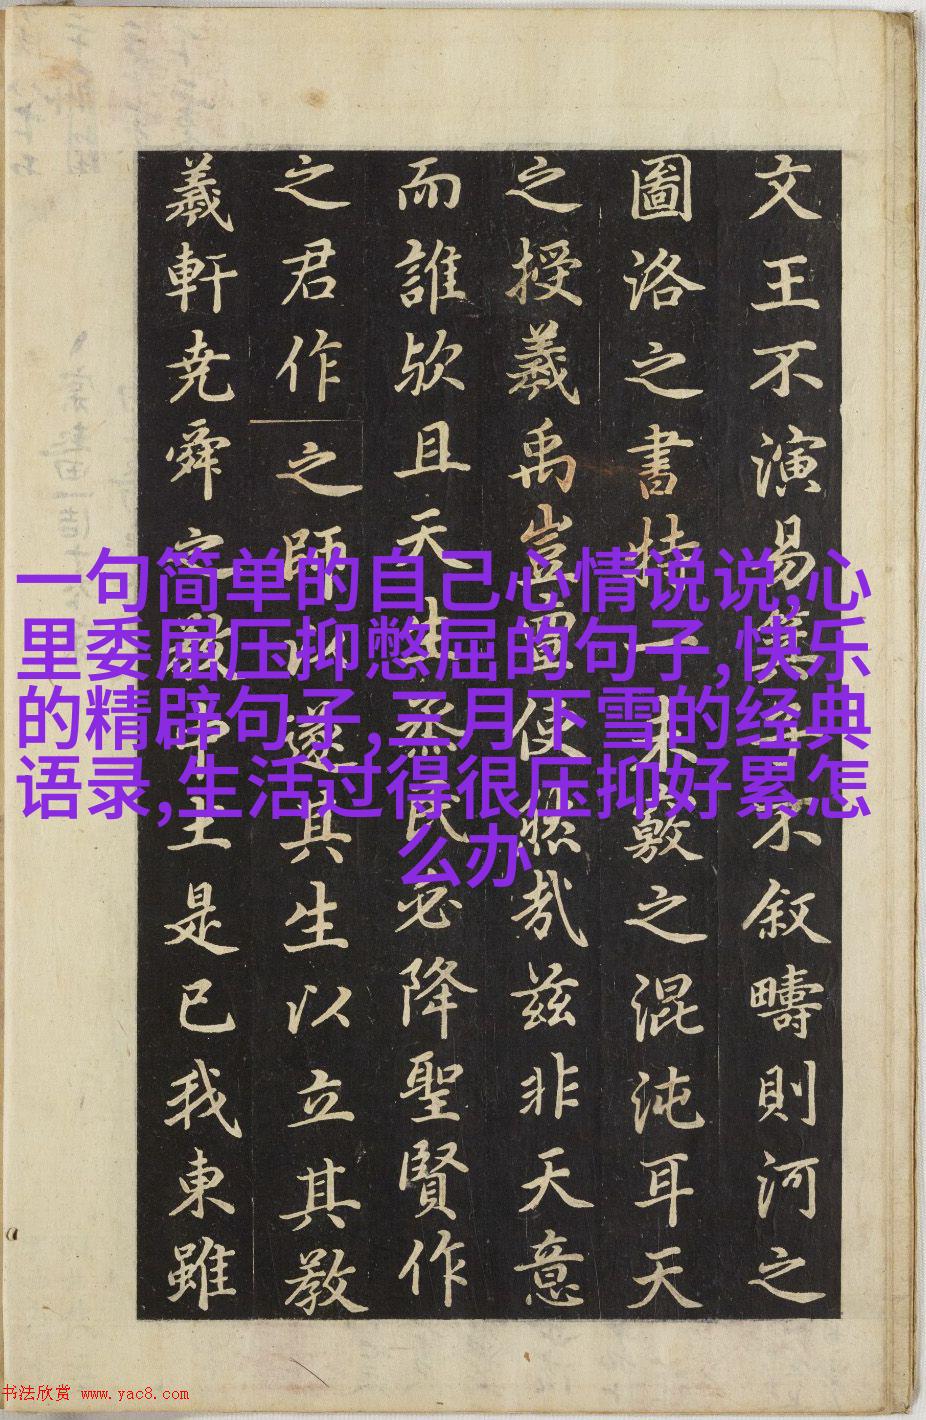 文王不演易箕子不叙疇則河之
圖洛之書特一未之混沌耳天
之授羲禹豈便然哉兹非天意
而誰歟且天生蒸民必降聖賢作
之君作之師以遂其生以立其教
羲軒尭舜之帝王是已我東雖
一句简单的自己心情说说,心
里委屈压抑憋屈的句子,快乐
的精辟句子,三月下雪的经典
语录,生活过得很压抑好累怎
么办
书法欣赏 www.yac8.com